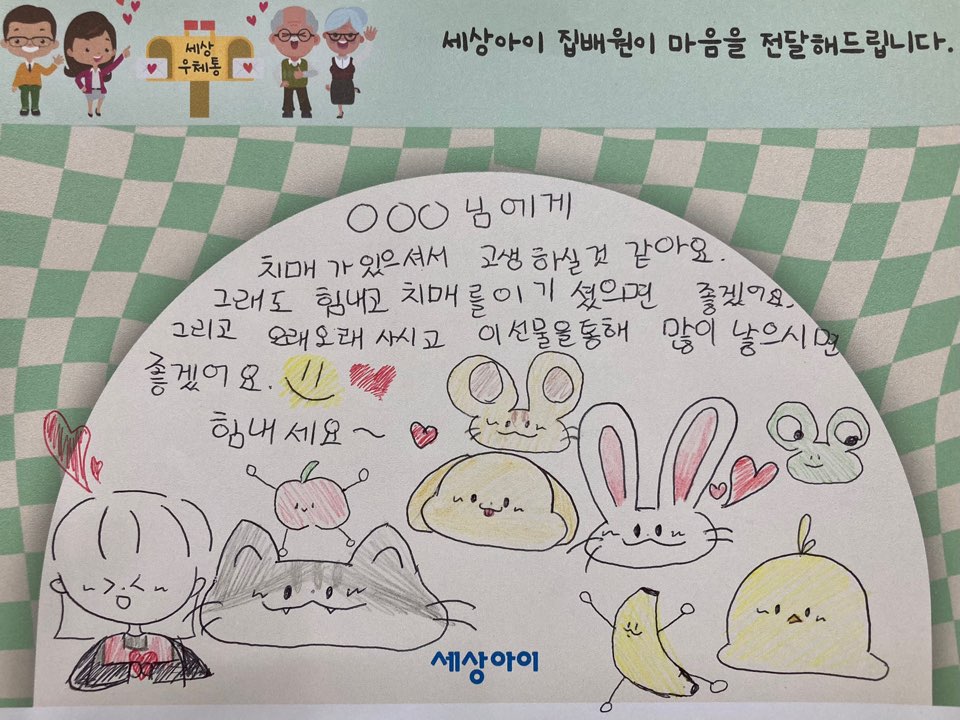 세상
우체통
세상아이 집배원이 마음을 전달해드립니다.
○○○ 님에게
치매가 있으셔서 고생하실것 같아요.
그래도 힘내고 치매를 이기셨으면 좋겠어요.
그리고 오래오래 사시고 이선물을통해 많이 낳으시면
좋겠어요.
힘내세요~
세상아이